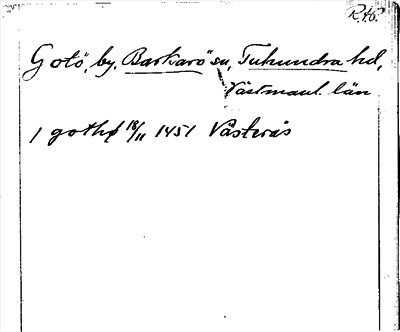 R.46?
Gotö, by, Barkarö sn, Tuhundra hd,
Västmanl. län
I gothø 18/11 1451 Västerås